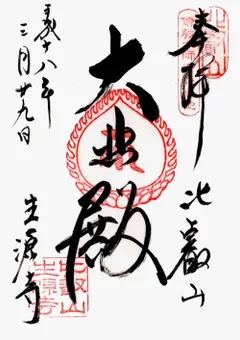 奉拝
比叡山
大悲殿
平成十八年
三月廿九日
生源寺
比叡山
生源寺